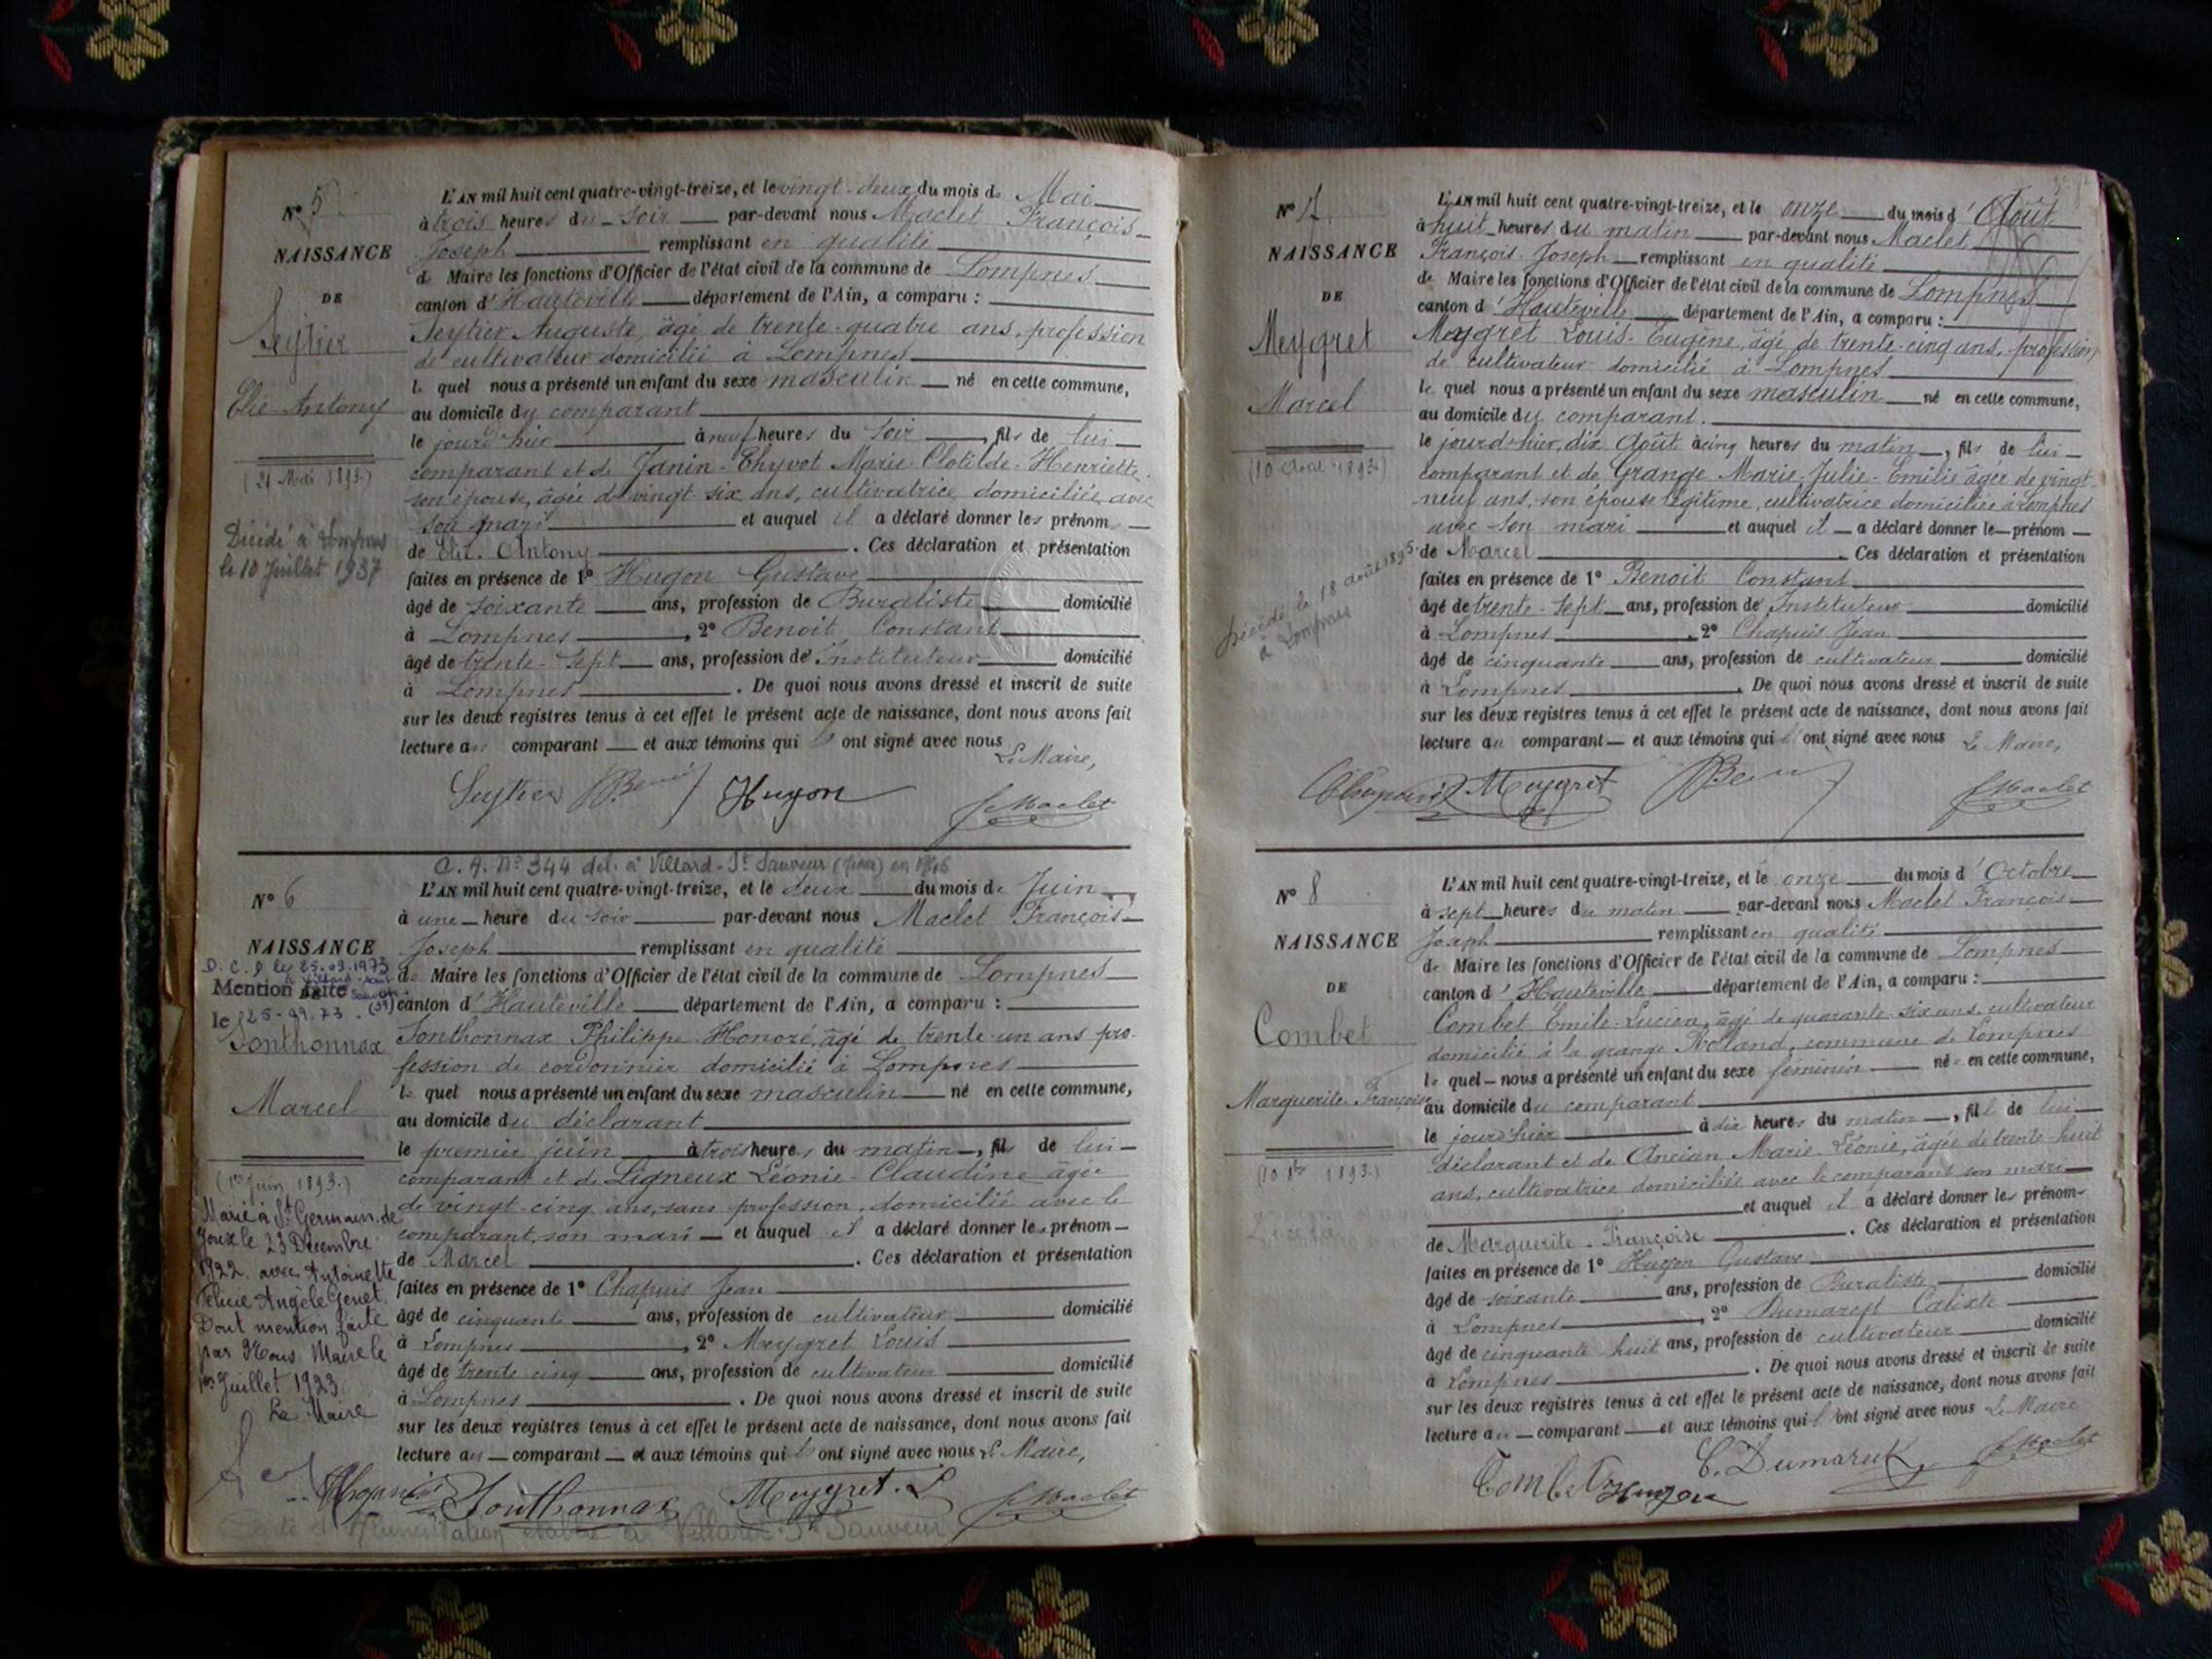 N° 5
NAISSANCE
DE
Seytier
Elie Antony
(21 Mai 1893.)
Décédé à Lompnes
le 10 Juillet 1937
L'AN mil huit cent quatre-vingt-treize, et le vingt-deux du mois de Mai
à trois heures du soir par-devant nous Maclet François
Joseph remplissant en qualité
de Maire les fonctions d'Officier de l'état civil de la commune de Lompnes
canton d'Hauteville département de l'Ain, a comparu :
Seytier Auguste, âgé de trente-quatre ans, profession
de cultivateur domicilié à Lompnes
le quel nous a présenté un enfant du sexe masculin né en cette commune,
au domicile du comparant
le jourd'hier à neuf heures du soir, fils de lui
comparant et de Janin-Thyvot Marie-Clotilde-Henriette
son épouse, âgée de vingt six ans, cultivatrice, domiciliée avec
son mari et auquel il a déclaré donner les prénoms
de Elie. Antony. Ces déclaration et présentation
faites en présence de 1° Hugon Gustave
âgé de soixante ans, profession de Buraliste domicilié
à Lompnes, 2° Benoit Constant
âgé de trente-sept ans, profession de Instituteur domicilié
à Lompnes. De quoi nous avons dressé et inscrit de suite
sur les deux registres tenus à cet effet le présent acte de naissance, dont nous avons fait
lecture au comparant et aux témoins qui ont signé avec nous
Le Maire,
Seytier Hugon Maclet
C. A. N° 344 dél. à Villard-St Sauveur (Jura) en 1946
N° 6
NAISSANCE
D.C.D le 25.09.1973
Mention faite
le 25-09.73.
Sonthonnax
Marcel
(1er Juin 1893.)
Marié à St Germain de
Joux le 23 Décembre
1922 avec Antoinette
Félicie Angèle Genet.
Dont mention faite
par Nous Maire le
1er Juillet 1923.
Le Maire
L'AN mil huit cent quatre-vingt-treize, et le deux du mois de Juin
à une heure du soir par-devant nous Maclet François
Joseph remplissant en qualité
de Maire les fonctions d'Officier de l'état civil de la commune de Lompnes
canton d'Hauteville département de l'Ain, a comparu :
Sonthonnax Philippe-Honoré, âgé de trente-un ans pro-
fession de cordonnier domicilié à Lompnes
le quel nous a présenté un enfant du sexe masculin né en cette commune,
au domicile du déclarant
le premier juin à trois heures du matin, fils de lui
comparant et de Ligneux Léonie-Claudine âgée
de vingt-cinq ans, sans profession, domicilié avec le
comparant, son mari et auquel il a déclaré donner le prénom
de Marcel. Ces déclaration et présentation
faites en présence de 1° Chapuis Jean
âgé de cinquante ans, profession de cultivateur domicilié
à Lompnes, 2° Meygret Louis
âgé de trente cinq ans, profession de cultivateur domicilié
à Lompnes. De quoi nous avons dressé et inscrit de suite
sur les deux registres tenus à cet effet le présent acte de naissance, dont nous avons fait
lecture au comparant et aux témoins qui ont signé avec nous Le Maire,
Sonthonnax Meygret. L Maclet
Carte d'Alimentation établie à Villard-St Sauveur
N° 7
NAISSANCE
DE
Meygret
Marcel
(10 Août 1893.)
Décédé le 18 août 1895
à Lompnes
L'AN mil huit cent quatre-vingt-treize, et le onze du mois d'Août
à huit heures du matin par-devant nous Maclet
François-Joseph remplissant en qualité
de Maire les fonctions d'Officier de l'état civil de la commune de Lompnes
canton d'Hauteville département de l'Ain, a comparu :
Meygret Louis-Eugène, âgé de trente-cinq ans, profession
de cultivateur domicilié à Lompnes
le quel nous a présenté un enfant du sexe masculin né en cette commune,
au domicile du comparant.
le jourd'hier, dix Août à cinq heures du matin, fils de lui
comparant et de Grange Marie-Julie-Emilie âgée de vingt
neuf ans, son épouse légitime, cultivatrice domiciliée à Lompnes
avec son mari et auquel il a déclaré donner le prénom
de Marcel. Ces déclaration et présentation
faites en présence de 1° Benoit Constant
âgé de trente-sept ans, profession de Instituteur domicilié
à Lompnes, 2° Chapuis Jean
âgé de cinquante ans, profession de cultivateur domicilié
à Lompnes. De quoi nous avons dressé et inscrit de suite
sur les deux registres tenus à cet effet le présent acte de naissance, dont nous avons fait
lecture au comparant et aux témoins qui ont signé avec nous Le Maire,
Meygret Maclet
N° 8
NAISSANCE
DE
Combet
Marguerite Françoise
(10 8bre 1893.)
L'AN mil huit cent quatre-vingt-treize, et le onze du mois d'Octobre
à sept heures du matin par-devant nous Maclet François
Joseph remplissant en qualité
de Maire les fonctions d'Officier de l'état civil de la commune de Lompnes
canton d'Hauteville département de l'Ain, a comparu :
Combet Emile-Lucien, âgé de quarante-six ans, cultivateur
domicilié à la grange Rolland, commune de Lompnes
le quel nous a présenté un enfant du sexe féminin né en cette commune,
au domicile du comparant
le jourd'hier à dix heures du matin, fil de lui
déclarant et de Ancian Marie-Léonie, âgée de trente-huit
ans, cultivatrice domiciliée avec le comparant son mari
et auquel il a déclaré donner les prénom
de Marguerite-Françoise. Ces déclaration et présentation
faites en présence de 1° Hugon Gustave
âgé de soixante ans, profession de Buraliste domicilié
à Lompnes, 2° Dumarest Calixte
âgé de cinquante huit ans, profession de cultivateur domicilié
à Lompnes. De quoi nous avons dressé et inscrit de suite
sur les deux registres tenus à cet effet le présent acte de naissance, dont nous avons fait
lecture au comparant et aux témoins qui ont signé avec nous Le Maire
Combet Hugon C. Dumarest Maclet